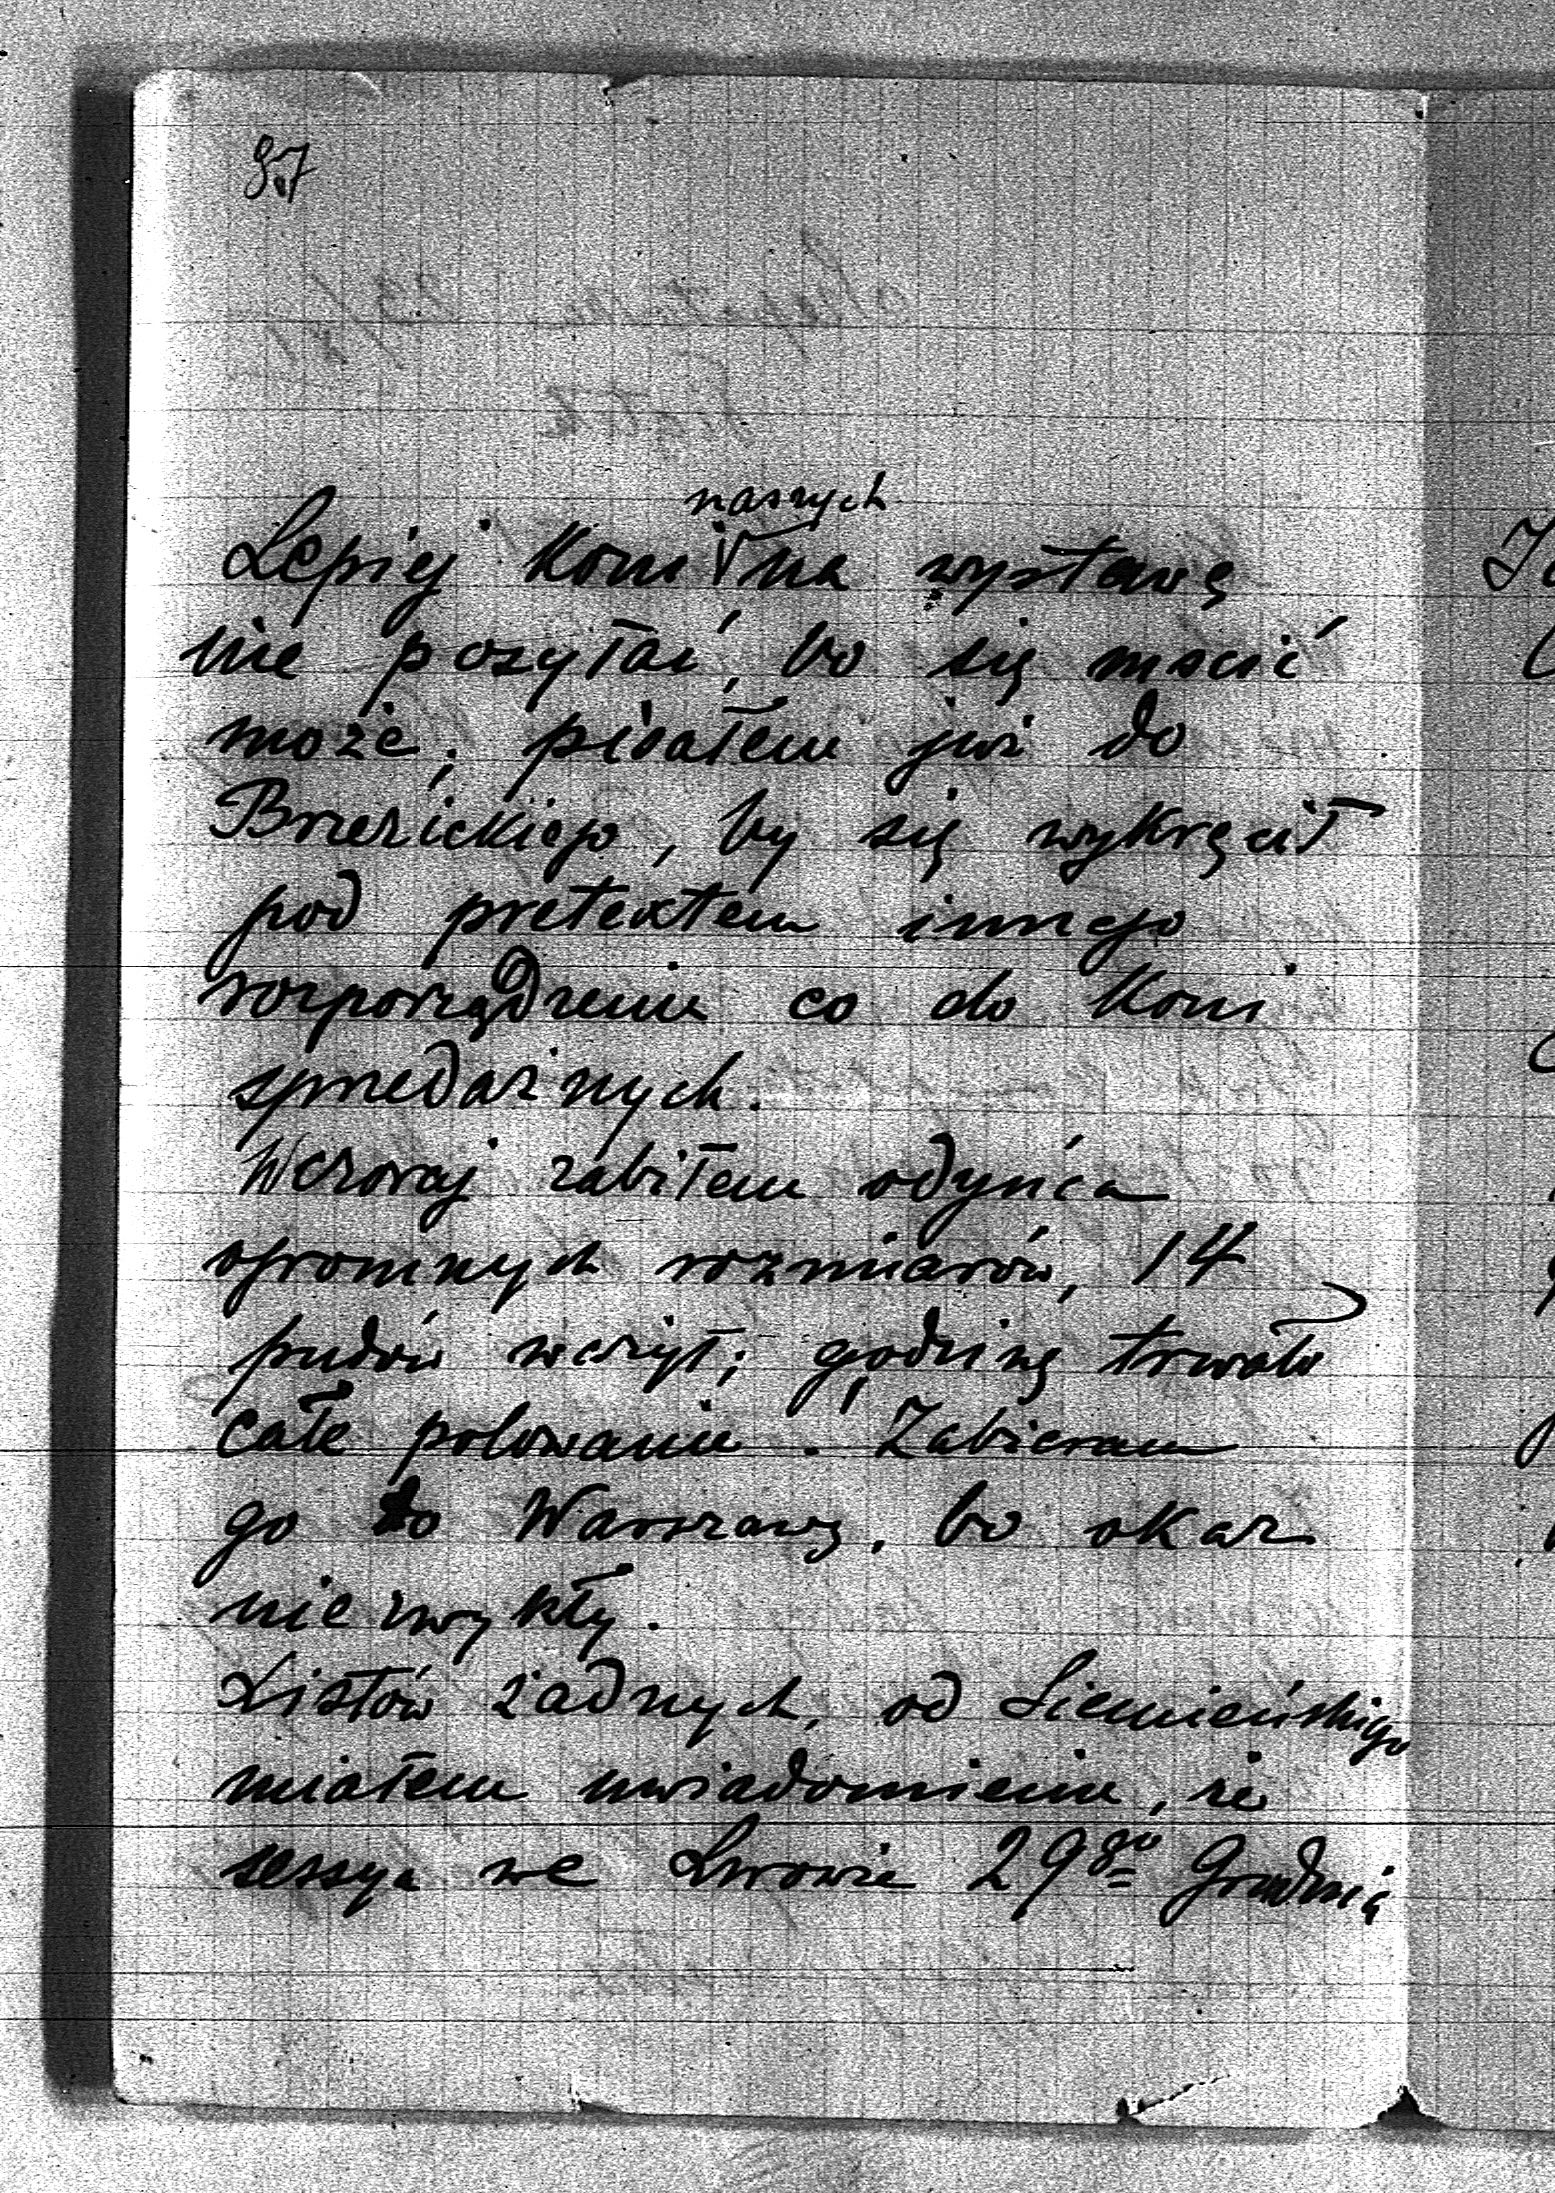 97
naszych
Lepiej koni na wystawę
nie posyłać, bo się mscić
może; pisałem już do
Brzezickiego, by się wykręcił
pod pretextem innego
rozporządzenia co do koni
sprzedażnych.
Wczoraj zabiłem odyńca
ogromnych rozmiarów, 14
pudów ważył; godzinę trwało
całe polowanie. Zabieram
go do Warszawy, bo okaz
niezwykły.
Listów żadnych, od Siemieńskiego
miałem uwiadomienie, że
sessya we Lwowie 29go Grudnia